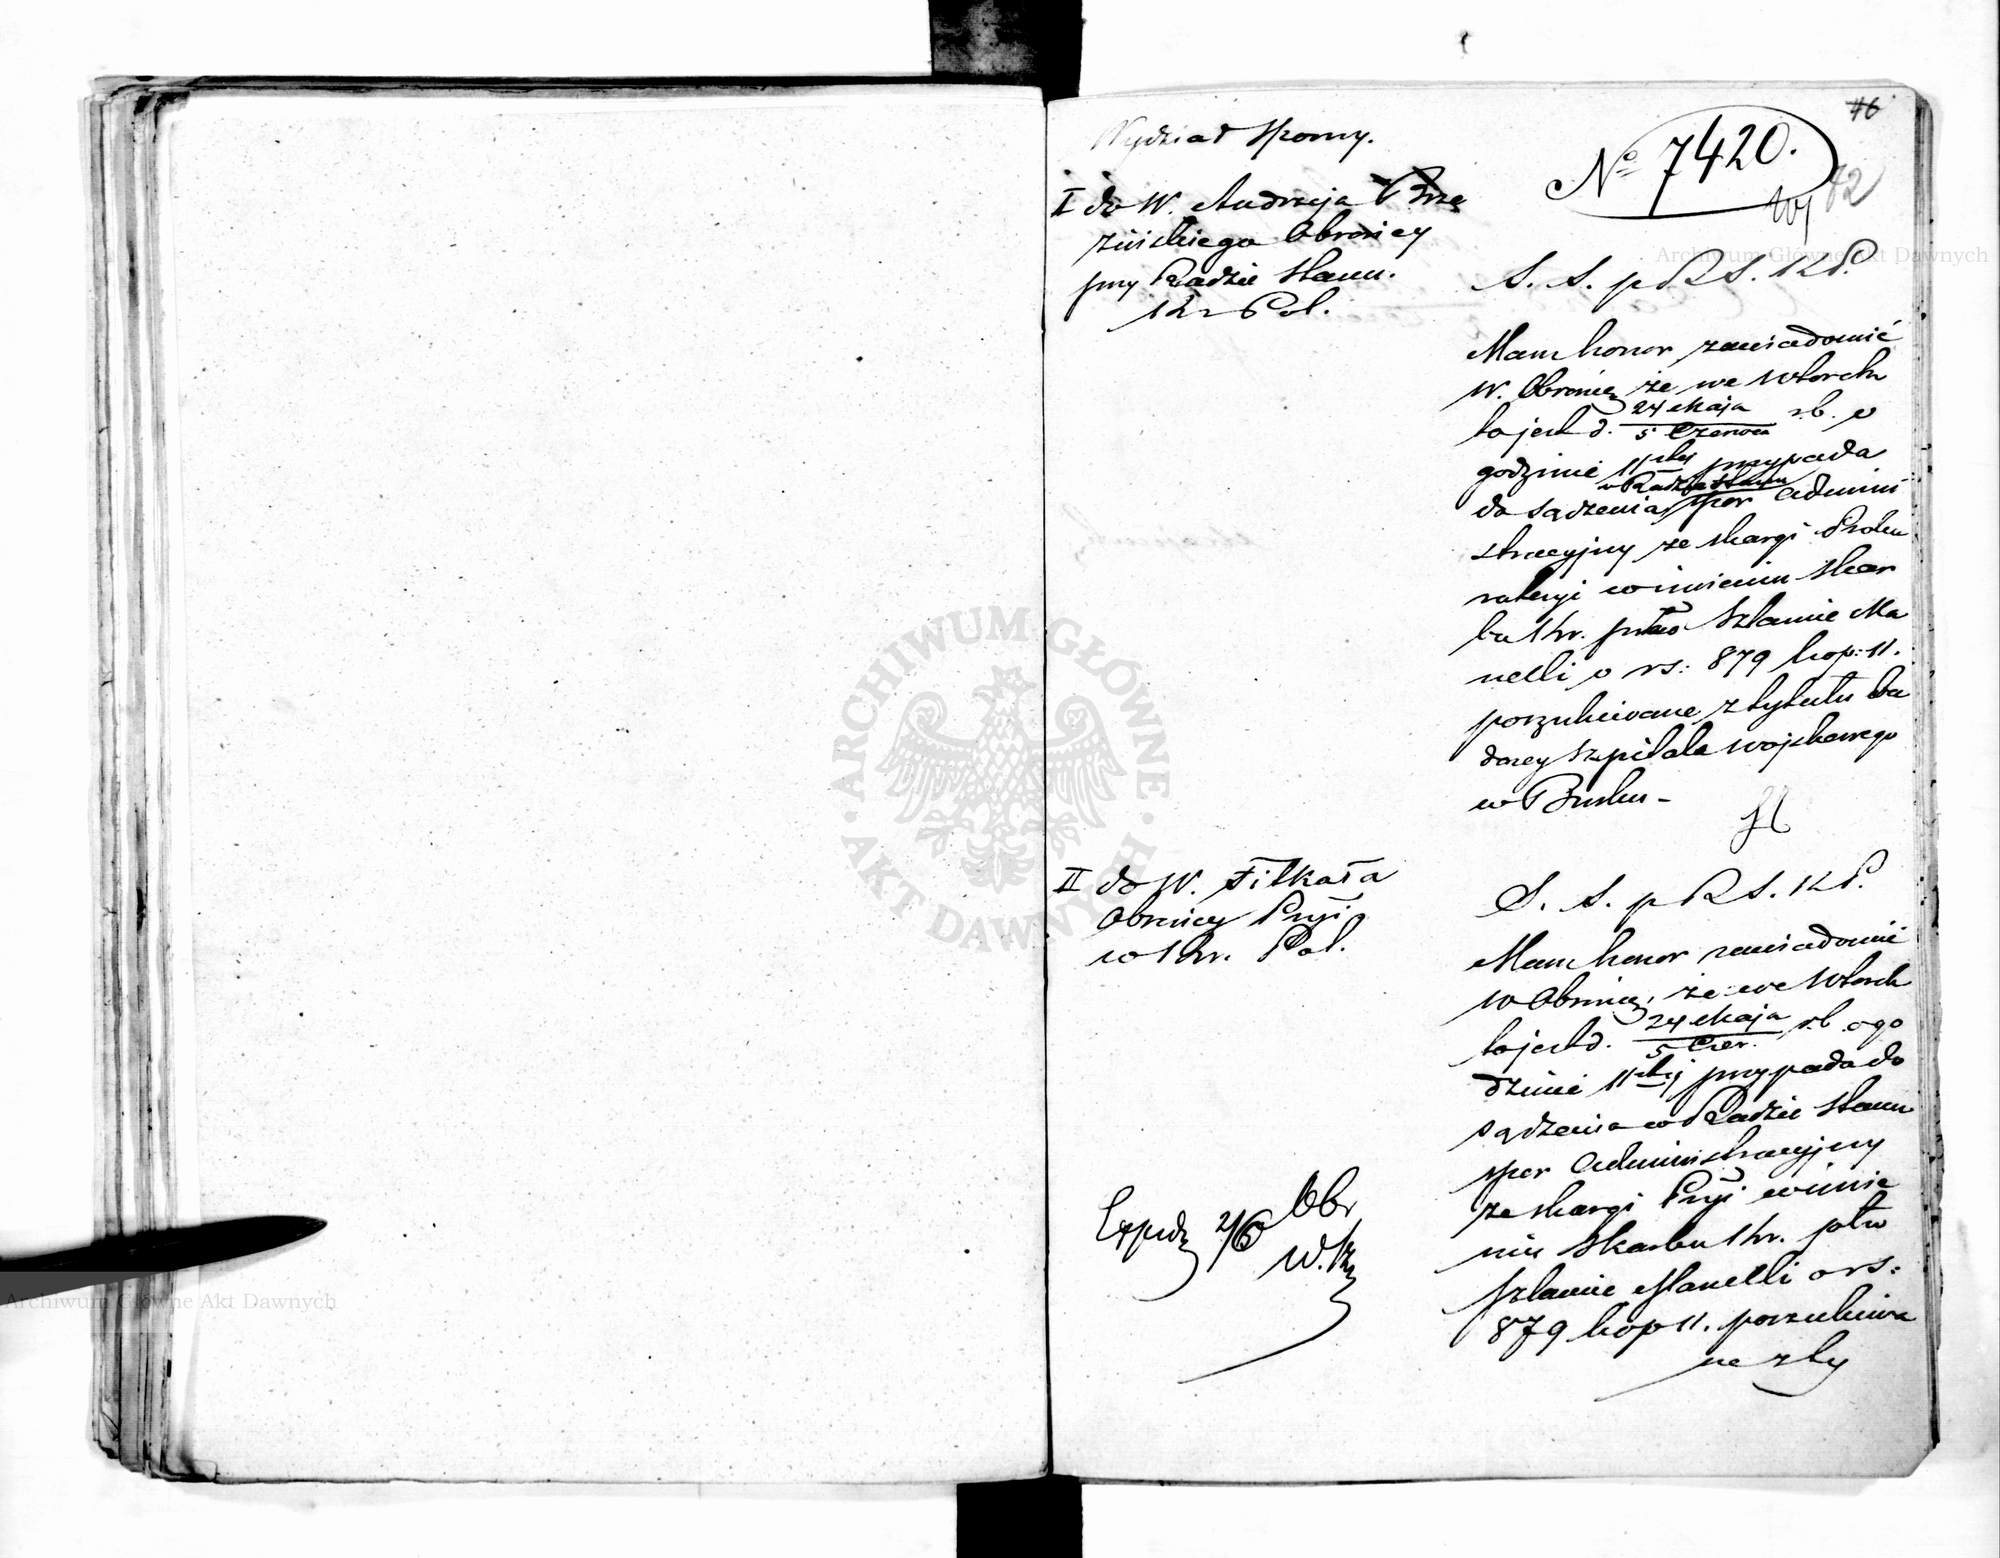 46
Wydział Sporny.
No 7420.
42
I do W. Andrzeja Brze
zińskiego Obrońcy
przy Radzie Stanu.
Kr Pol.
S. S. p R S. K P.
Mam honor zawiadomić
W. Obrońcę że we Wtorek
to jest d. 24 Maja / 5 Czerwca r.b. o
godzinie 11stej przypada
w Radzie Stanu
do sądzenia spor admini
stracyjny ze skargi Proku
ratoryi w imieniu Skar
bu Kr. przko Szlamie Ma
nelli o rs: 879 kop: 11.
poszukiwane z tytułu do
stawy Szpitala wojskowego
w Busku -
II do W. Fitkała
Obrońcy Pryi
w Kr. Pol.
S. S. p R S. K P.
Mam honor zawiadomić
W Obrońcę, że we Wtorek
to jest d. 24 Maja / 5 Czer. r.b. o go
dzinie 11stej przypada do
sądzenia w Radzie Stanu
spor Administracyjny
ze skargi Pryi w imie
niu Skarbu Kr. ptko
Szlamie Manelli o rs:
879 kop 11. poszukiwa
ne z ty
Expedę 2/6 Obr
Archiwum Główne Akt Dawnych
ARCHIWUM GŁÓWNE AKT DAWNYCH
Archiwum Główne Akt Dawnych